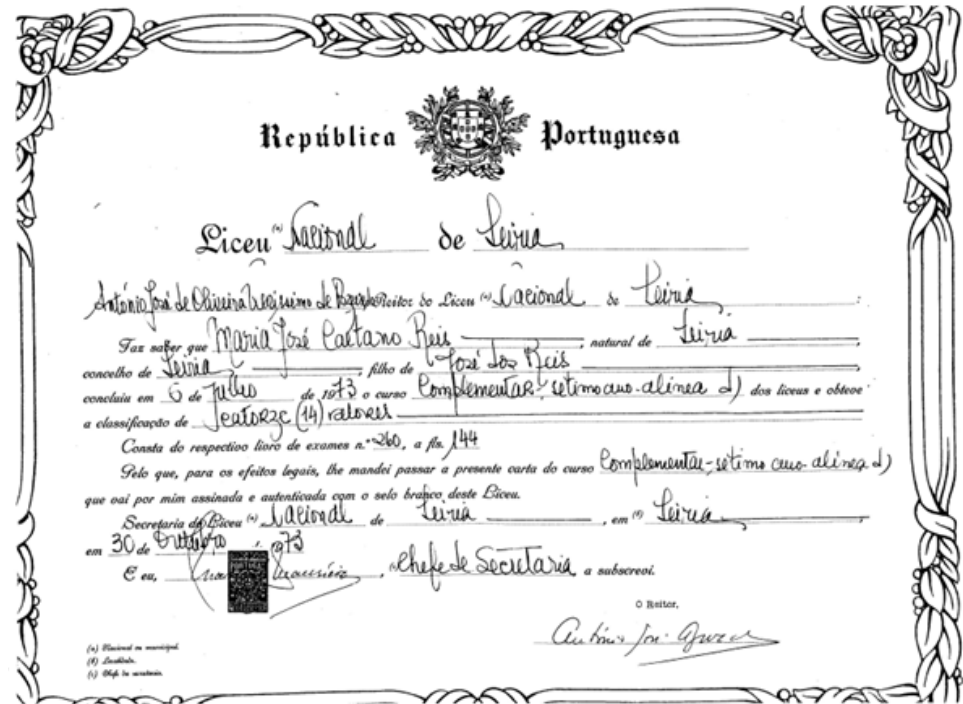 República Portuguesa
Liceu (a) Nacional de Leiria
António José de Oliveira Reitor do Liceu (a) Nacional de Leiria :
Faz saber que Maria José Caetano Reis , natural de Leiria ,
concelho de Leiria , filho de José dos Reis ,
concluiu em 6 de Julho de 1973 o curso Complementar, setimo ano-alínea d) dos liceus e obteve
a classificação de catorze (14) valores
Consta do respectivo livro de exames n.º 260, a fls. 144
Pelo que, para os efeitos legais, lhe mandei passar a presente carta do curso Complementar-setimo ano-alínea d)
que vai por mim assinada e autenticada com o selo branco deste Liceu.
Secretaria do Liceu (a) Nacional de Leiria , em (b) Leiria ,
em 30 de Outubro 1973
E eu, , (c) Chefe de Secretaria a subscrevi.
O Reitor,
António José
(a) Nacional ou municipal.
(b) Localidade.
(c) Chefe da secretaria.